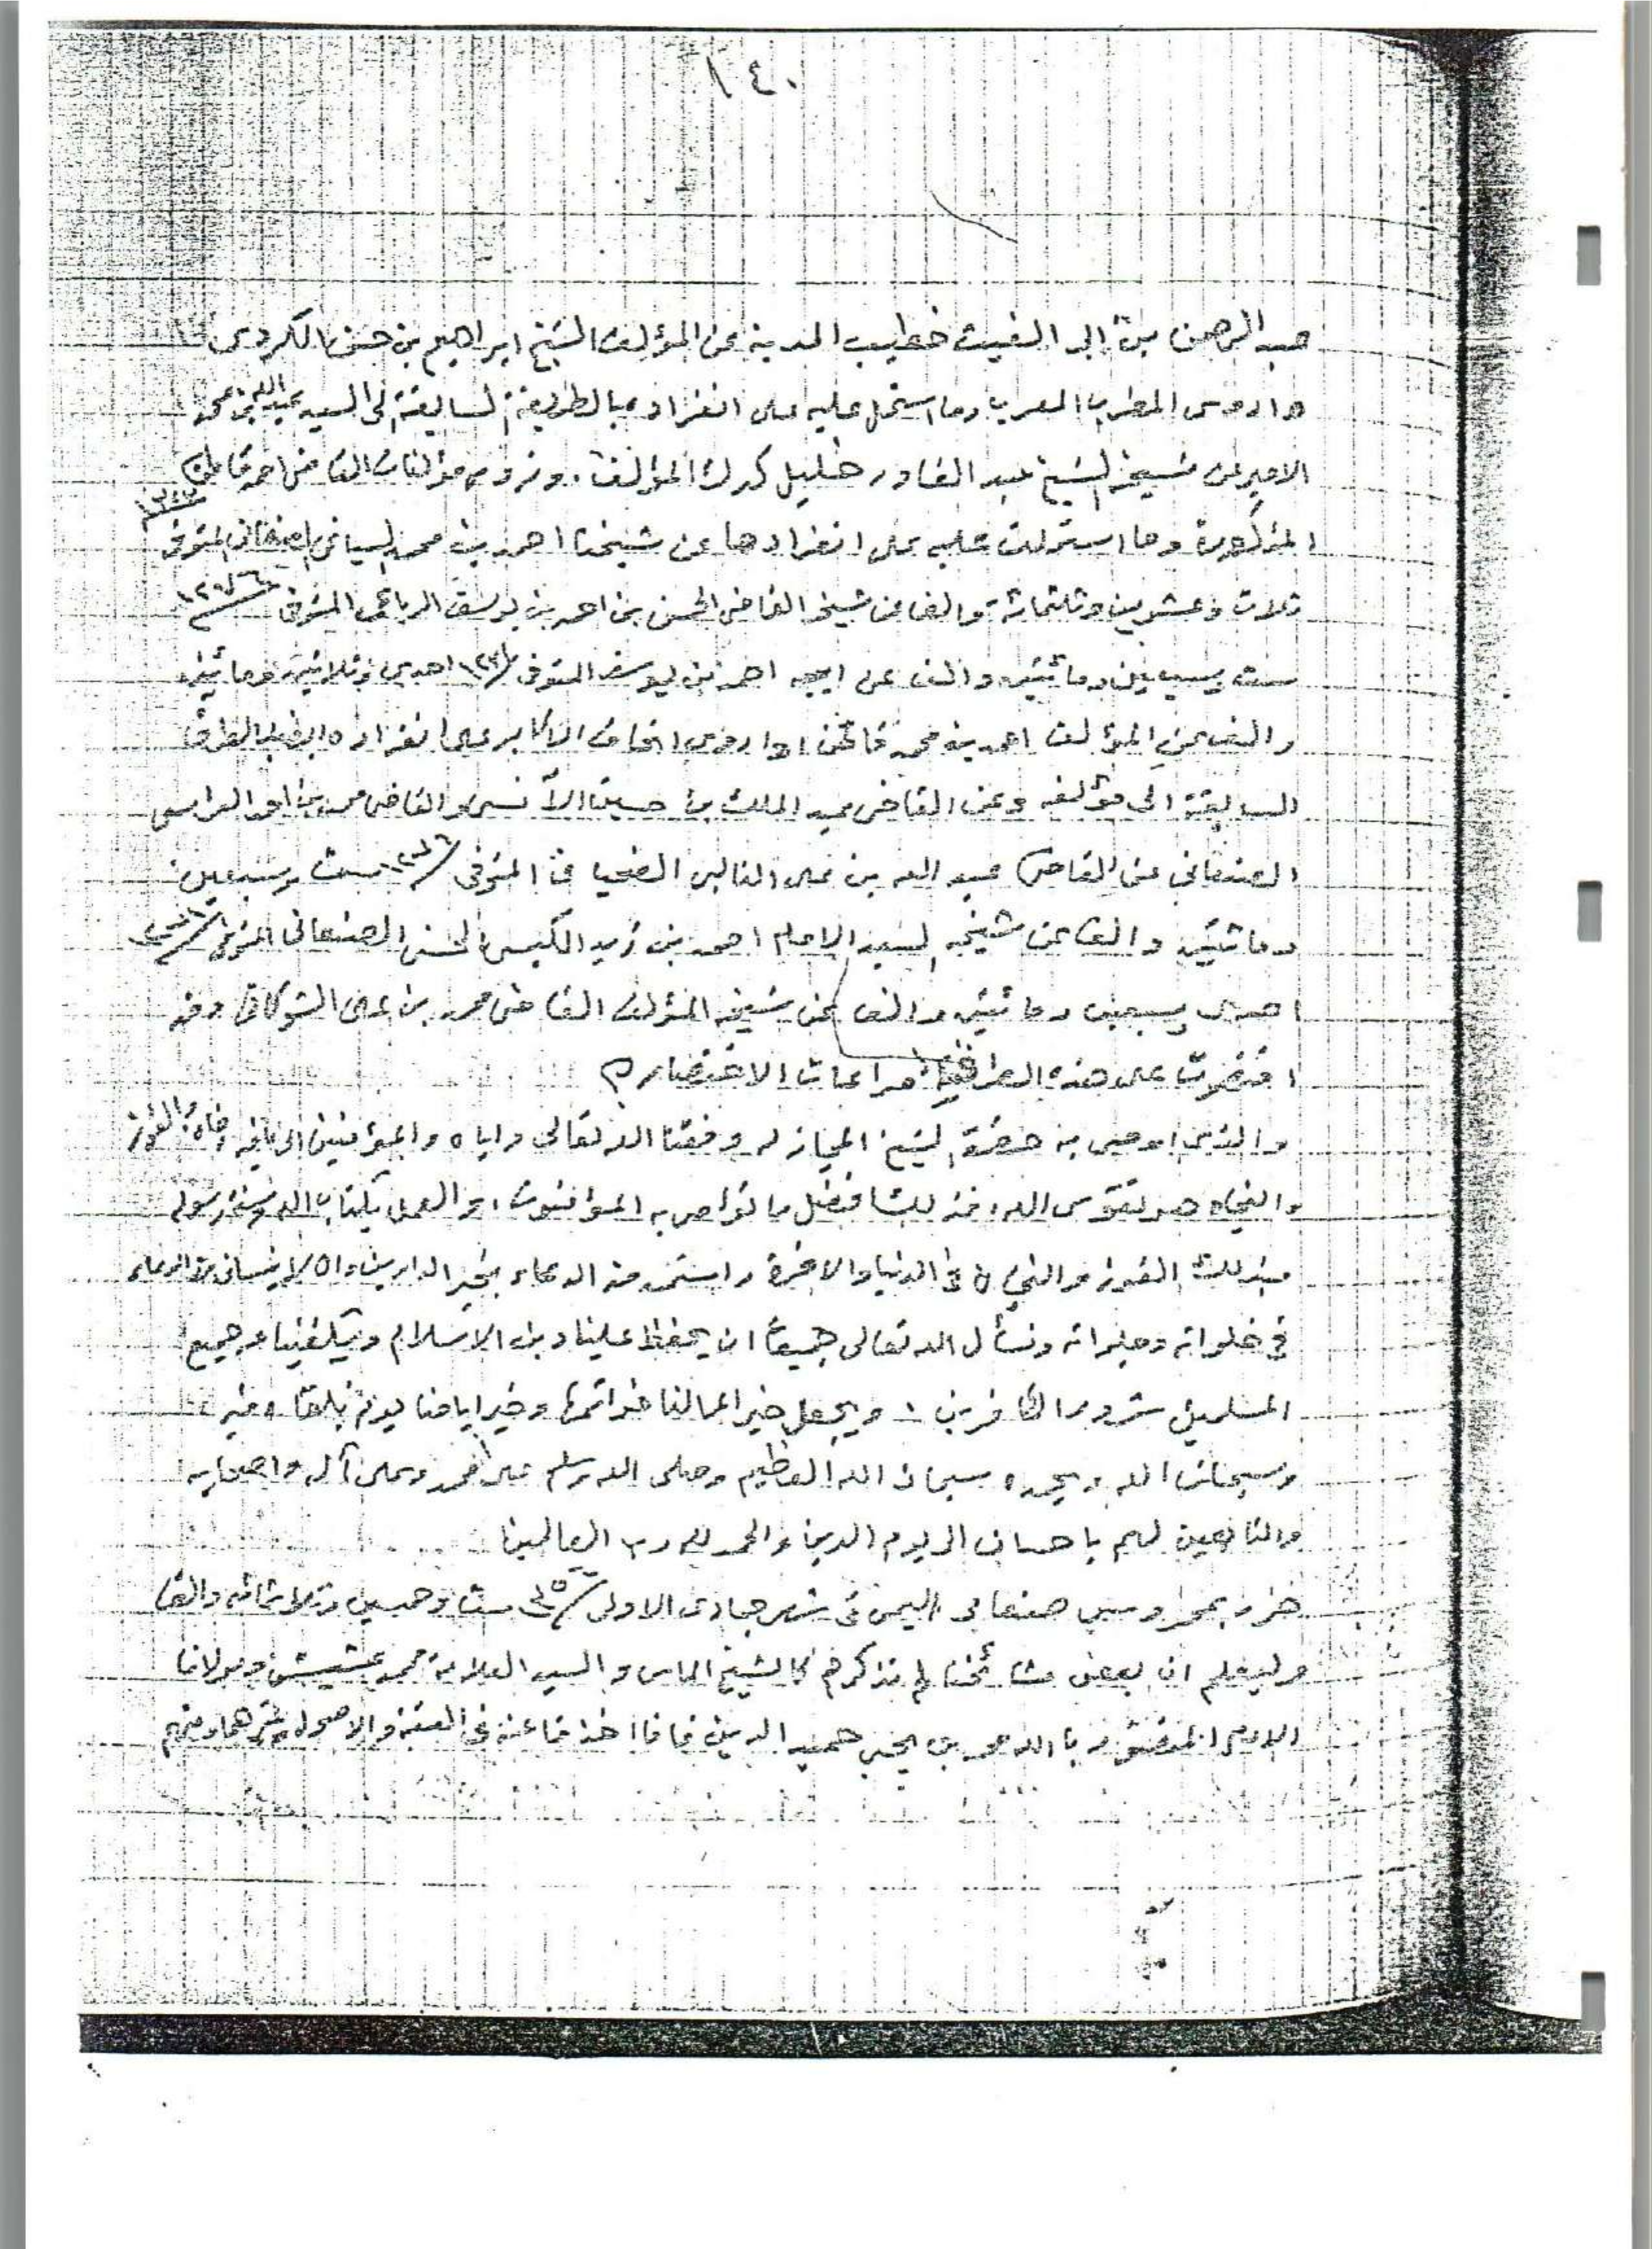 ١٤٠
عبد الرحمن بن ابي الغيث خطيب المدينة عن المؤلف الشيخ ابراهيم بن حسن الكردي
واروي المطرب المعرب وما اشتمل عليه على انفراده بالطريقة السابقة الى السيد عبد الله بن محمد
الامير عن شيخه الشيخ عبد القادر خليل كدك المؤلف. ونروي مؤلفات القاضي احمد قاطن
المذكورة وما استملت عليه على انفرادها عن شيخنا احمد بن محمد السياغي الصنعاني المتوفى ١٣٢٣
ثلاث وعشرين وثلثمائة والف عن شيخه القاضي الحسن بن احمد بن يوسف الرباعي المتوفى ١٢٧٦
ست وسبعين ومائتين والف عن ابيه احمد بن يوسف المتوفى ١٢٣١ احدى وثلاثين ومائتين
والف عن المؤلف احمد بن محمد قاطن واروي اتحاف الاكابر على انفراده ايضا بالطرق
السابقة الى مؤلفه وعن القاضي عبد الملك بن حسين الآنسي والقاضي محمد بن احمد العراسي
الصنعاني عن القاضي عبد الله بن علي الغالبي الضحياني المتوفى ١٢٧٦ ست وسبعين
ومائتين والف عن شيخه السيد الامام احمد بن زيد الكبسي الحسني الصنعاني المتوفى ١٢٧١
احدى وسبعين ومائتين والف عن شيخه المؤلف القاضي محمد بن علي الشوكاني وقد
اقتصرت على هذه الطرق مراعاة الاختصار م
والذي اوصي به حضرة الشيخ المجاز له وفقنا الله تعالى واياه والمؤمنين الى ما فيه رضاه والفوز
والنجاة هو تقوى الله، فذلك افضل ما تواصى به المؤمنون، والعمل بكتاب الله وسنة رسوله
فبذلك الفوز والنجاة في الدنيا والاخرة واستمد منه الدعاء بخير الدارين وان لا ينساني من الدعاء
في خلواته وجلواته ونسأل الله تعالى جميعا ان يحفظ علينا دين الاسلام ويكفينا وجميع
المسلمين شرور الكافرين، ويجعل خير اعمالنا خواتمها وخير ايامنا يوم نلقاه فيه
وسبحان الله وبحمده سبحان الله العظيم وصلى الله وسلم على محمد وعلى آله واصحابه
والتابعين لهم باحسان الى يوم الدين والحمد لله رب العالمين
حرر بمحروس صنعاء اليمن في شهر جمادى الاولى ست وخمسين وثلاثمائه والف
وليعلم ان بعض مشائخنا لم نذكرهم كالشيخ الماس والسيد العلامة محمد عشيش ومولانا
الامام المنصور بالله محمد بن يحيى حميد الدين فانا اخذنا عنه في الفقه والاصول وغيرهما ومنهم